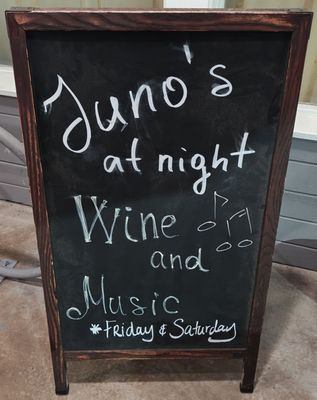 Juno's
at night
Wine
and
Music
*Friday & Saturday